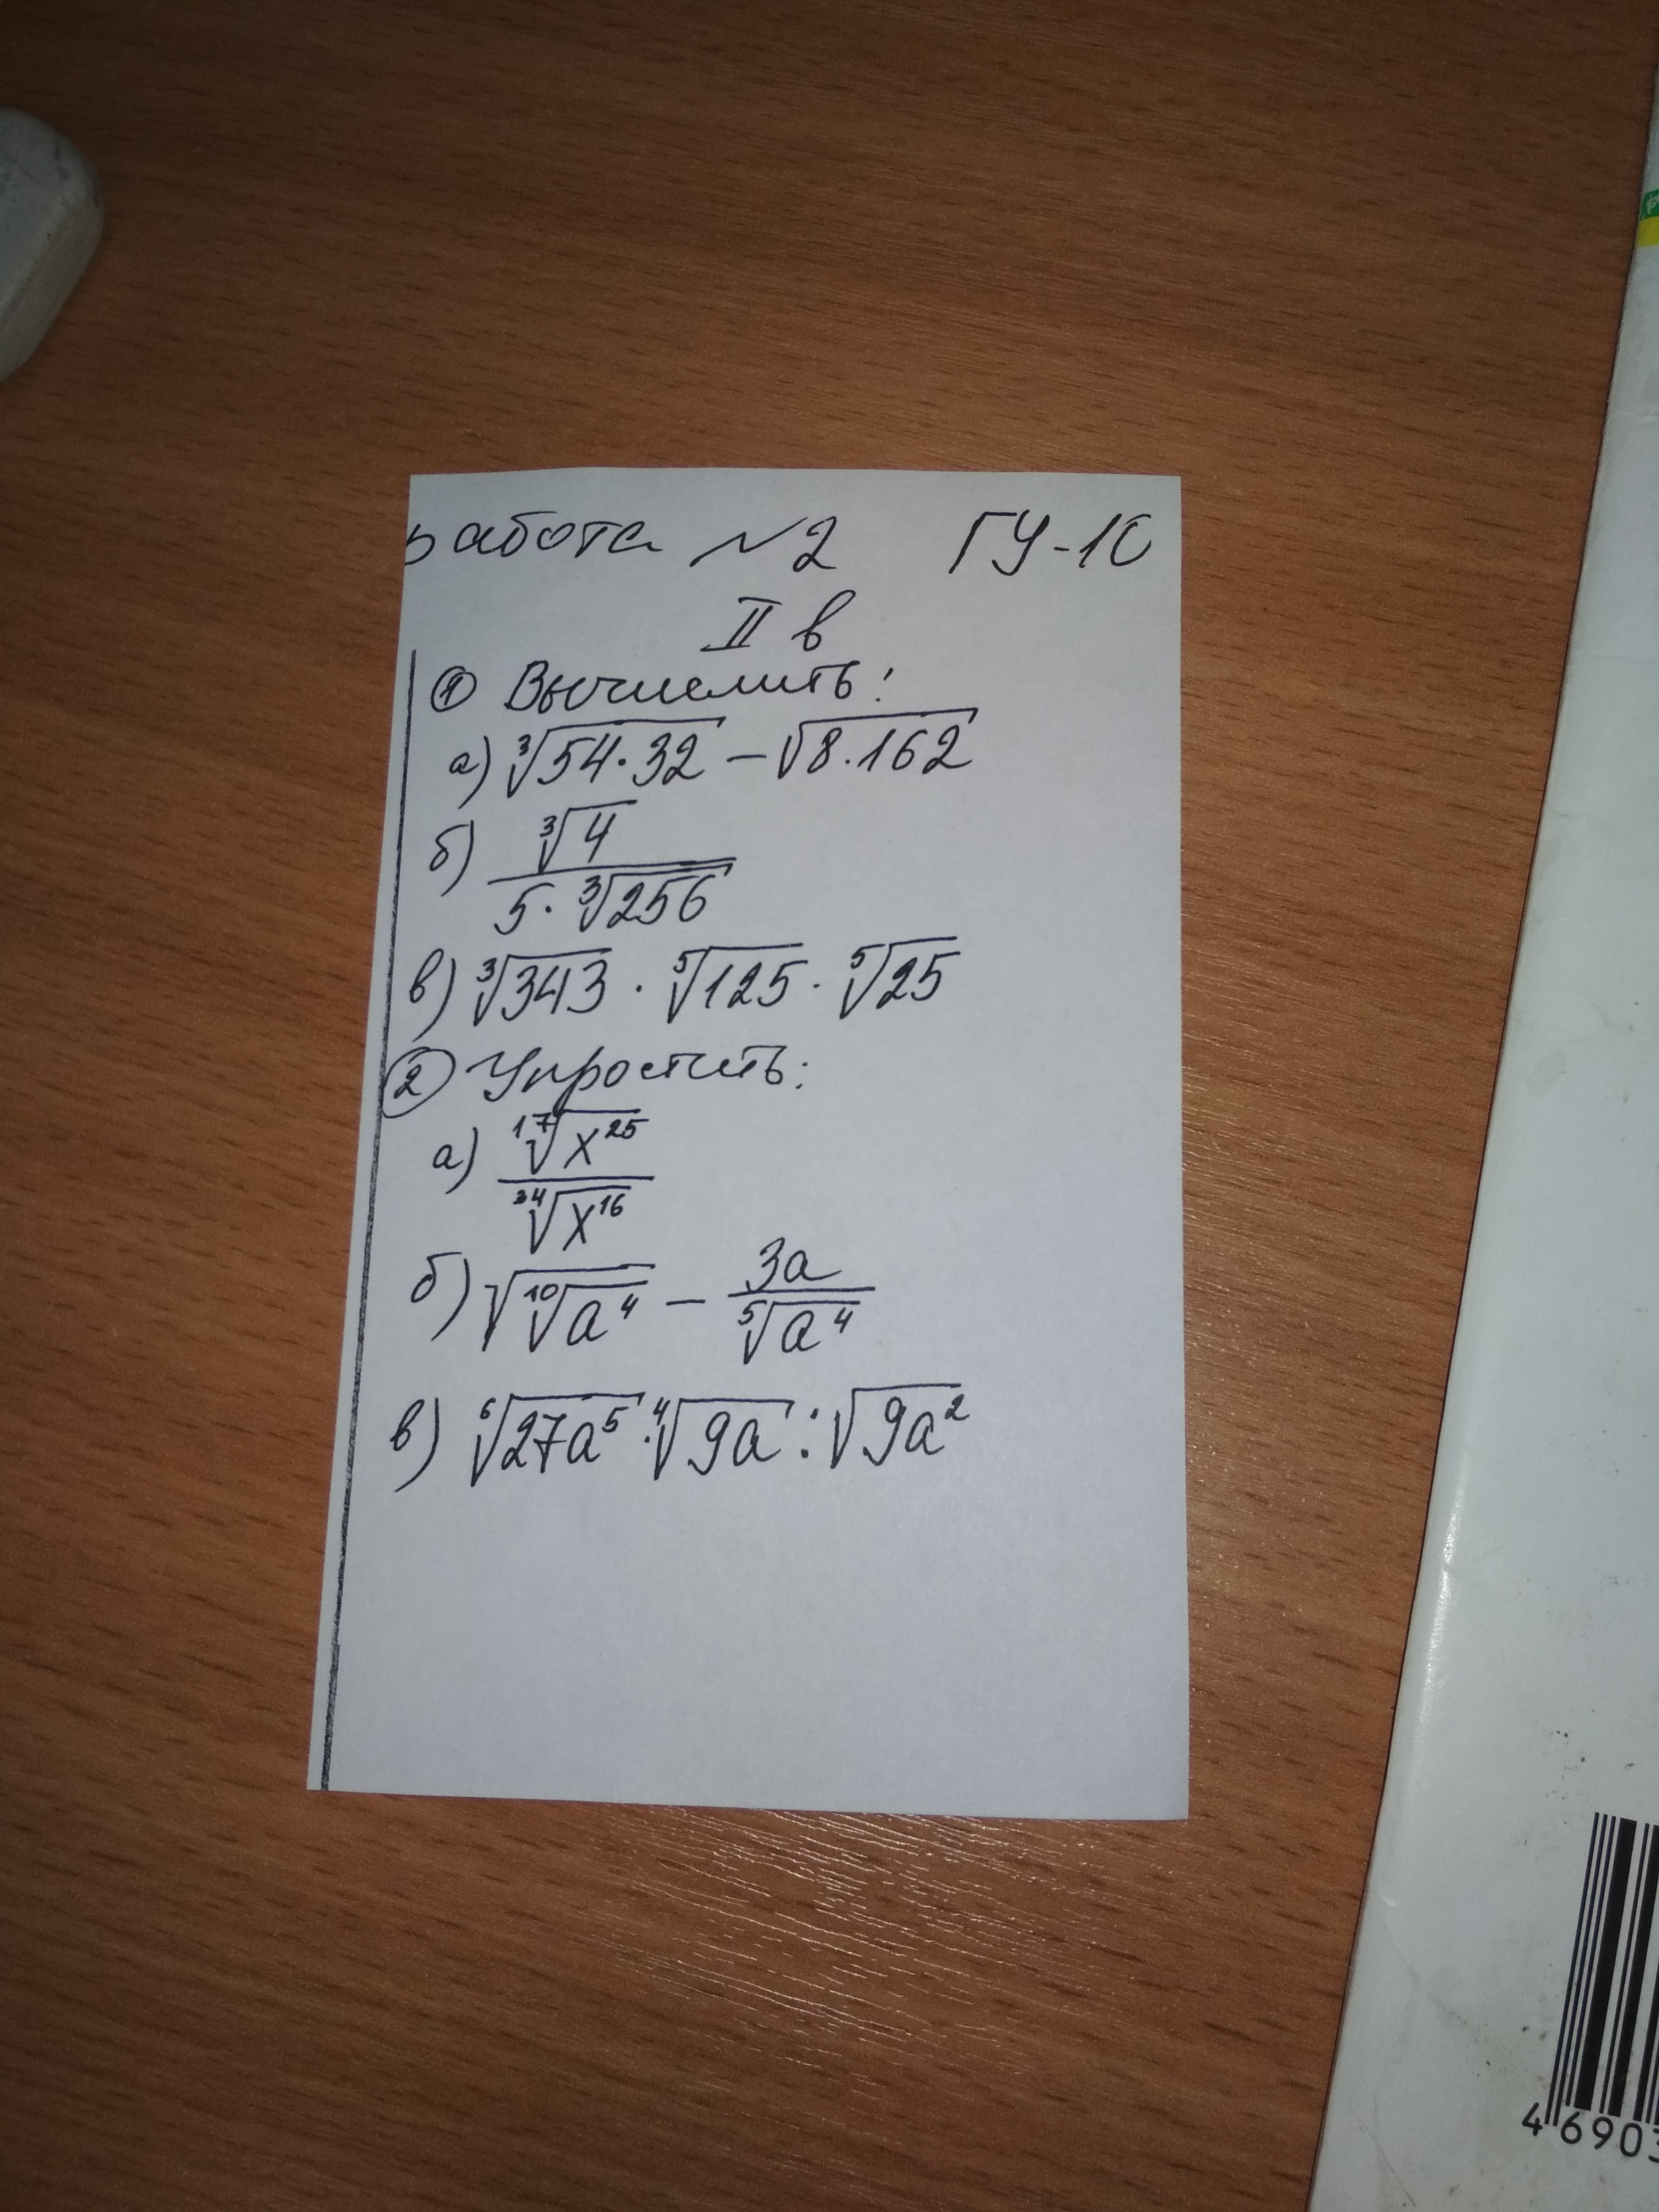 работа №2 ГУ-10
II в
① Вычислить:
а) ∛(54·32) − √(8·162)
б) ∛4 / (5·∛256)
в) ∛343 · ⁵√125 · ⁵√25
② Упростить:
а) ¹⁷√(x²⁵) / ³⁴√(x¹⁶)
б) √(¹⁰√(a⁴)) − 3a / ⁵√(a⁴)
в) ⁶√(27a⁵) · ⁴√(9a) : √(9a²)
4 6903